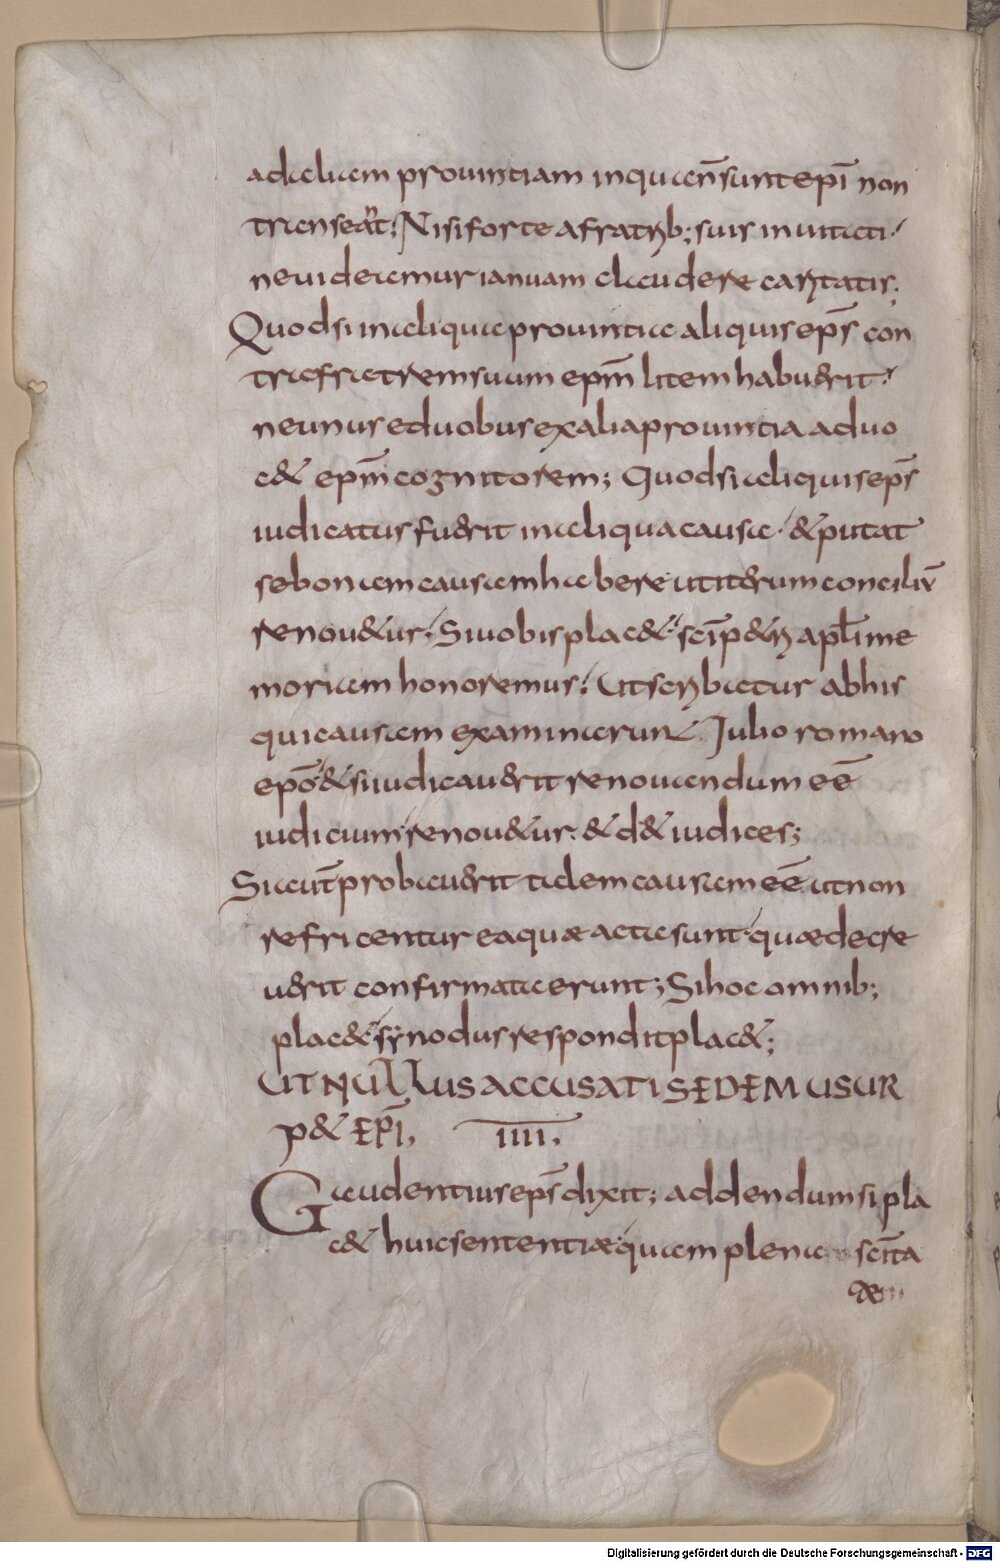 ad aliam prouintiam in qua n̄ sunt ep̄i non
transeat; Nisi forte a fratrib; suis inuitati
ne uideamur ianuam claudere caritatis.
Quod si in aliqua prouintia aliquis ep̄s con
tra fratrem suum ep̄m litem habuerit
ne unus e duobus ex alia prouintia aduo
c& ep̄m cognitorem; Quod si aliquis ep̄s
iudicatus fuerit in aliqua causa & putat
se bonam causam habere ut iterum conciliū
renou&ur; Si uobis plac& sc̄i p&ri apl̄i me
moriam honoremus; Ut scribatur ab his
qui causam examinarunt Julio romano
ep̄o & si iudicauerit renouandum eē
iudicium renou&ur & d& iudices;
Si aut̄ probauerit talem causam eē ut non
refricentur ea quæ acta sunt quæ decre
uerit confirmata erunt; Si hoc omnib;
plac& synodus respondit plac&;
UT NULLUS ACCUSATI SEDEM USUR
p& EP̄I. IIII.
Gaudentius ep̄s dixit; addendum si pla
c& huic sententiæ quam plena sc̄ita